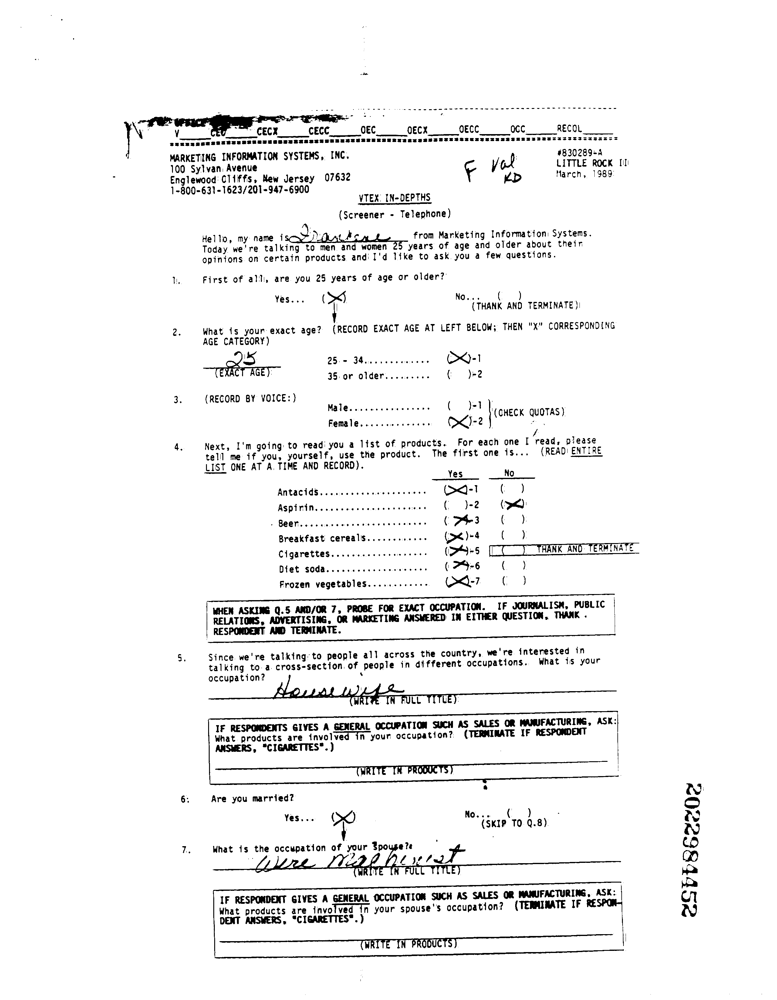 V____CEC____CECX____CECC____OEC____OECX____OECC____OCC____RECOL____
MARKETING INFORMATION SYSTEMS, INC.
100 Sylvan Avenue
Englewood Cliffs, New Jersey 07632
1-800-631-1623/201-947-6900
F Val
KD
#830289-A
LITTLE ROCK III
March, 1989
VTEX IN-DEPTHS
(Screener - Telephone)
Hello, my name is from Marketing Information Systems.
Today we're talking to men and women 25 years of age and older about their
opinions on certain products and I'd like to ask you a few questions.
1. First of all, are you 25 years of age or older?
Yes... (X) No... ( )
(THANK AND TERMINATE)
2. What is your exact age? (RECORD EXACT AGE AT LEFT BELOW; THEN "X" CORRESPONDING
AGE CATEGORY)
25 25 - 34............. (X)-1
(EXACT AGE) 35 or older......... ( )-2
3. (RECORD BY VOICE:)
Male............... ( )-1
Female............. (X)-2 (CHECK QUOTAS)
4. Next, I'm going to read you a list of products. For each one I read, please
tell me if you, yourself, use the product. The first one is... (READ ENTIRE
LIST ONE AT A TIME AND RECORD).
Yes No
Antacids..................... (X)-1 ( )
Aspirin...................... ( )-2 (X)
Beer......................... ( X-3 ( )
Breakfast cereals............ (X)-4 ( )
Cigarettes................... (X)-5 ( ) THANK AND TERMINATE
Diet soda.................... ( X)-6 ( )
Frozen vegetables............ (X)-7 ( )
WHEN ASKING Q.5 AND/OR 7, PROBE FOR EXACT OCCUPATION. IF JOURNALISM, PUBLIC
RELATIONS, ADVERTISING, OR MARKETING ANSWERED IN EITHER QUESTION, THANK
RESPONDENT AND TERMINATE.
5. Since we're talking to people all across the country, we're interested in
talking to a cross-section of people in different occupations. What is your
occupation?
Housewife
(WRITE IN FULL TITLE)
IF RESPONDENTS GIVES A GENERAL OCCUPATION SUCH AS SALES OR MANUFACTURING, ASK:
What products are involved in your occupation? (TERMINATE IF RESPONDENT
ANSWERS, "CIGARETTES".)
(WRITE IN PRODUCTS)
6. Are you married?
Yes... (X) No... ( )
(SKIP TO Q.8)
7. What is the occupation of your Spouse?
Wire Machinist
(WRITE IN FULL TITLE)
IF RESPONDENT GIVES A GENERAL OCCUPATION SUCH AS SALES OR MANUFACTURING, ASK:
What products are involved in your spouse's occupation? (TERMINATE IF RESPON-
DENT ANSWERS, "CIGARETTES".)
(WRITE IN PRODUCTS)
2022984452